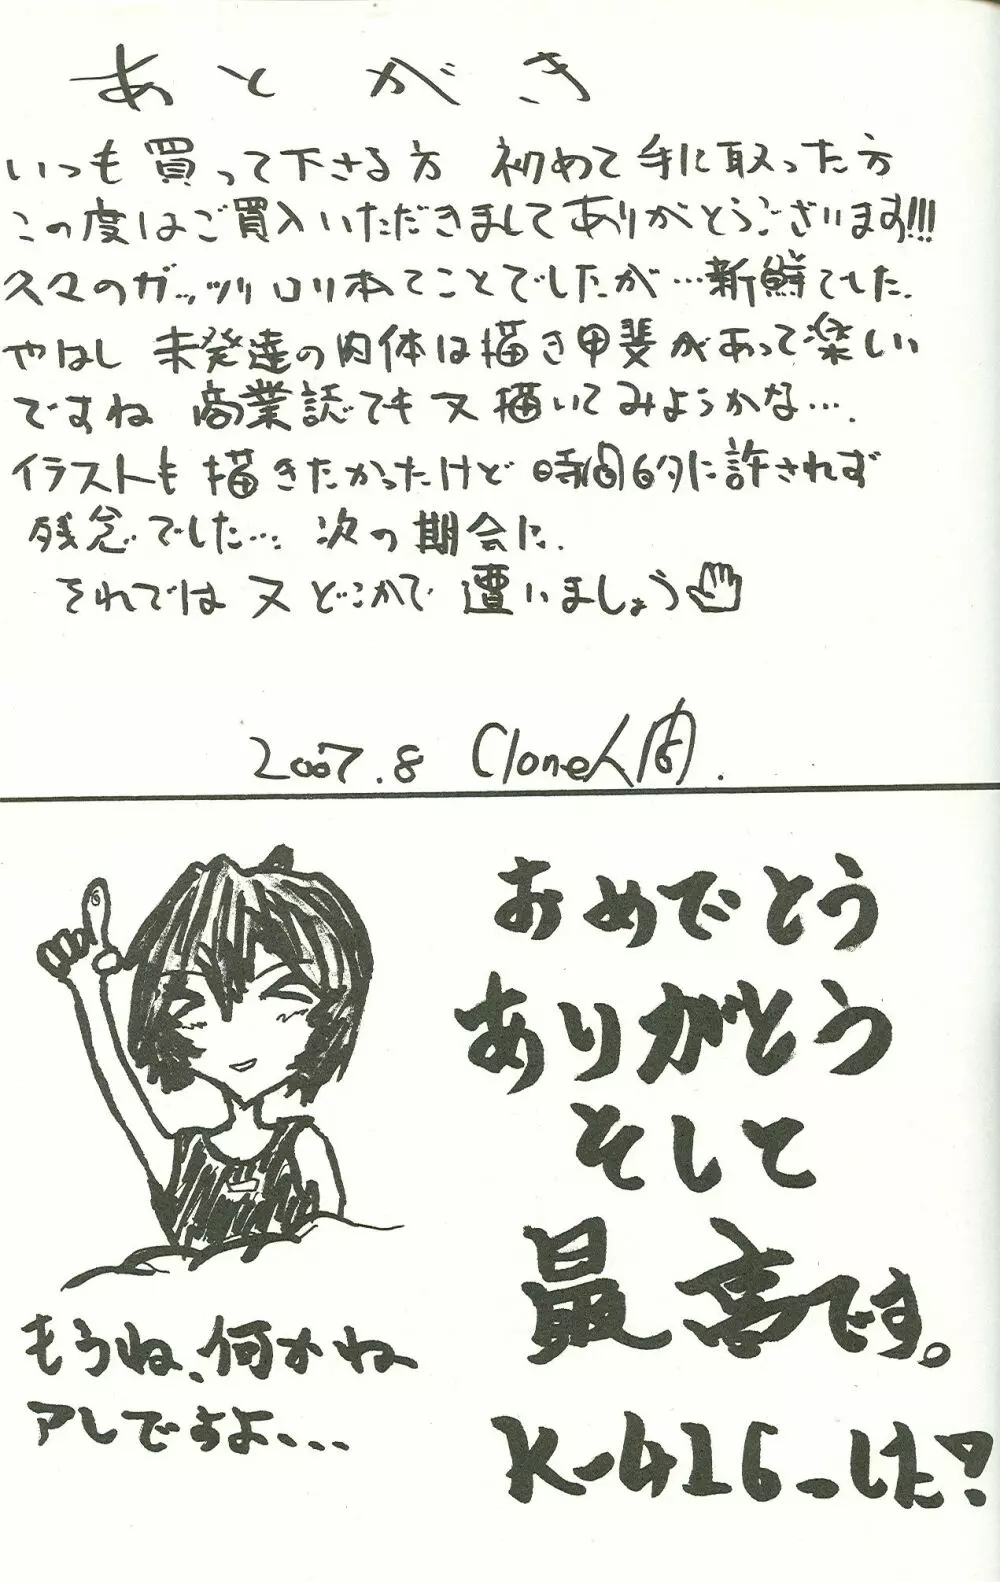 あとがき
いつも買って下さる方 初めて手に取った方
この度はご買入いただきましてありがとうございます!!!
久々のガッツリロリ本てことでしたが…新鮮でした.
やはし 未発達の肉体は描き甲斐があって楽しい
ですね 商業誌でも又描いてみようかな….
イラストも描きたかったけど時間的に許されず
残念でした…. 次の期会に.
それでは又どこかで遭いましょう
2007.8 Clone人間.
おめでとう
ありがとう
そして
最高です。
K-416_した?
もうね、何かね
アレですよ、、、